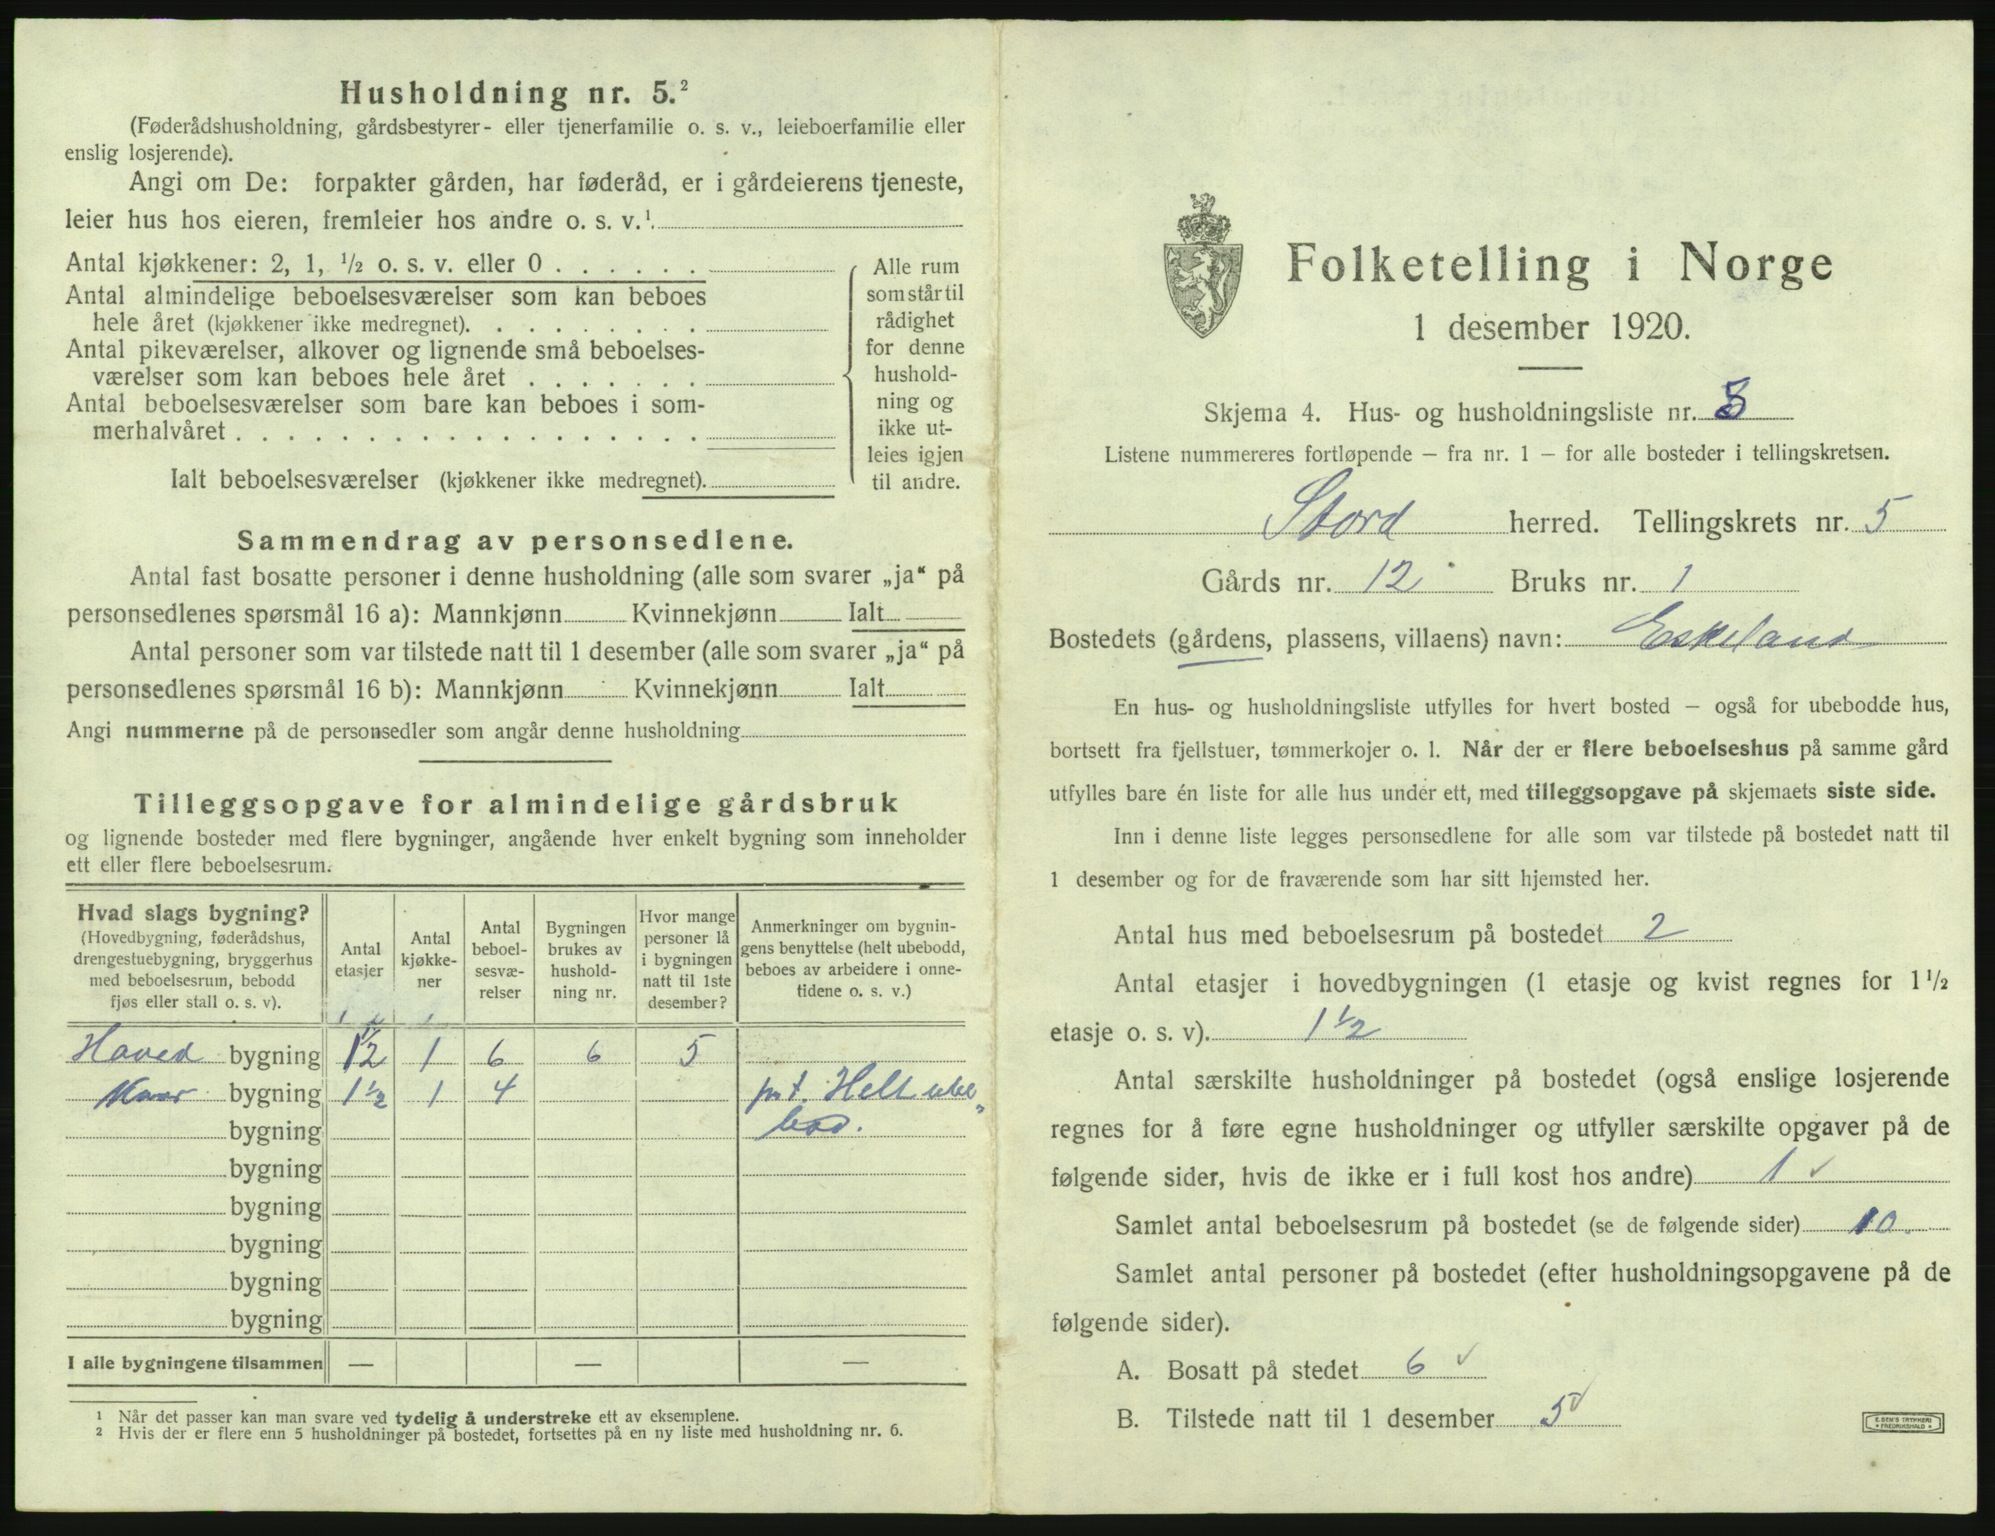 Husholdning nr. 5.²
(Føderådshusholdning, gårdsbestyrer- eller tjenerfamilie o. s. v., leieboerfamilie eller
enslig losjerende).
Angi om De: forpakter gården, har føderåd, er i gårdeierens tjeneste,
leier hus hos eieren, fremleier hos andre o. s. v.¹
Antal kjøkkener: 2, 1, ½ o. s. v. eller 0 . . . . . .
Antal almindelige beboelsesværelser som kan beboes
hele året (kjøkkener ikke medregnet). . . . . . . . .
Antal pikeværelser, alkover og lignende små beboelses-
værelser som kan beboes hele året . . . . . . .
Antal beboelsesværelser som bare kan beboes i som-
merhalvåret . . . . . . . . . . . . . . . . .
Ialt beboelsesværelser (kjøkkener ikke medregnet).
Alle rum
som står til
rådighet
for denne
hushold-
ning og
ikke ut-
leies igjen
til andre.
Sammendrag av personsedlene.
Antal fast bosatte personer i denne husholdning (alle som svarer „ja“ på
personsedlenes spørsmål 16 a): Mannkjønn Kvinnekjønn Ialt
Antal personer som var tilstede natt til 1 desember (alle som svarer „ja“ på
personsedlenes spørsmål 16 b): Mannkjønn Kvinnekjønn Ialt
Angi nummerne på de personsedler som angår denne husholdning
Tilleggsopgave for almindelige gårdsbruk
og lignende bosteder med flere bygninger, angående hver enkelt bygning som inneholder
ett eller flere beboelsesrum.
Hvad slags bygning?
(Hovedbygning, føderådshus,
drengestuebygning, bryggerhus
med beboelsesrum, bebodd
fjøs eller stall o. s. v).
Antal
etasjer
Antal
kjøkke-
ner
Antal
beboel-
sesvæ-
relser
Bygningen
brukes av
hushold-
ning nr.
Hvor mange
personer lå
i bygningen
natt til 1ste
desember?
Anmerkninger om bygnin-
gens benyttelse (helt ubebodd,
beboes av arbeidere i onne-
tidene o. s. v.)
Hoved bygning 1½ 1 6 6 5
bygning 1½ 1 4 pr t. Helt ube„
bygning bod.
bygning
bygning
bygning
bygning
bygning
I alle bygningene tilsammen — — —
¹ Når det passer kan man svare ved tydelig å understreke ett av eksemplene.
² Hvis der er flere enn 5 husholdninger på bostedet, fortsettes på en ny liste med husholdning nr. 6.
Folketelling i Norge
1 desember 1920.
Skjema 4. Hus- og husholdningsliste nr.
Listene nummereres fortløpende – fra nr. 1 – for alle bosteder i tellingskretsen.
Stord herred. Tellingskrets nr. 5
Gårds nr. 12 Bruks nr. 1
Bostedets (gårdens, plassens, villaens) navn: Eskeland
En hus- og husholdningsliste utfylles for hvert bosted – også for ubebodde hus,
bortsett fra fjellstuer, tømmerkojer o. l. Når der er flere beboelseshus på samme gård
utfylles bare én liste for alle hus under ett, med tilleggsopgave på skjemaets siste side.
Inn i denne liste legges personsedlene for alle som var tilstede på bostedet natt til
1 desember og for de fraværende som har sitt hjemsted her.
Antal hus med beboelsesrum på bostedet 2
Antal etasjer i hovedbygningen (1 etasje og kvist regnes for 1½
etasje o. s. v). 1½
Antal særskilte husholdninger på bostedet (også enslige losjerende
regnes for å føre egne husholdninger og utfyller særskilte opgaver på de
følgende sider, hvis de ikke er i full kost hos andre) 1 ✓
Samlet antal beboelsesrum på bostedet (se de følgende sider) 10.
Samlet antal personer på bostedet (efter husholdningsopgavene på de
følgende sider).
A. Bosatt på stedet 6 ✓
B. Tilstede natt til 1 desember 5 ✓
E. SEM'S TRYKKERI
FREDRIKSHALD